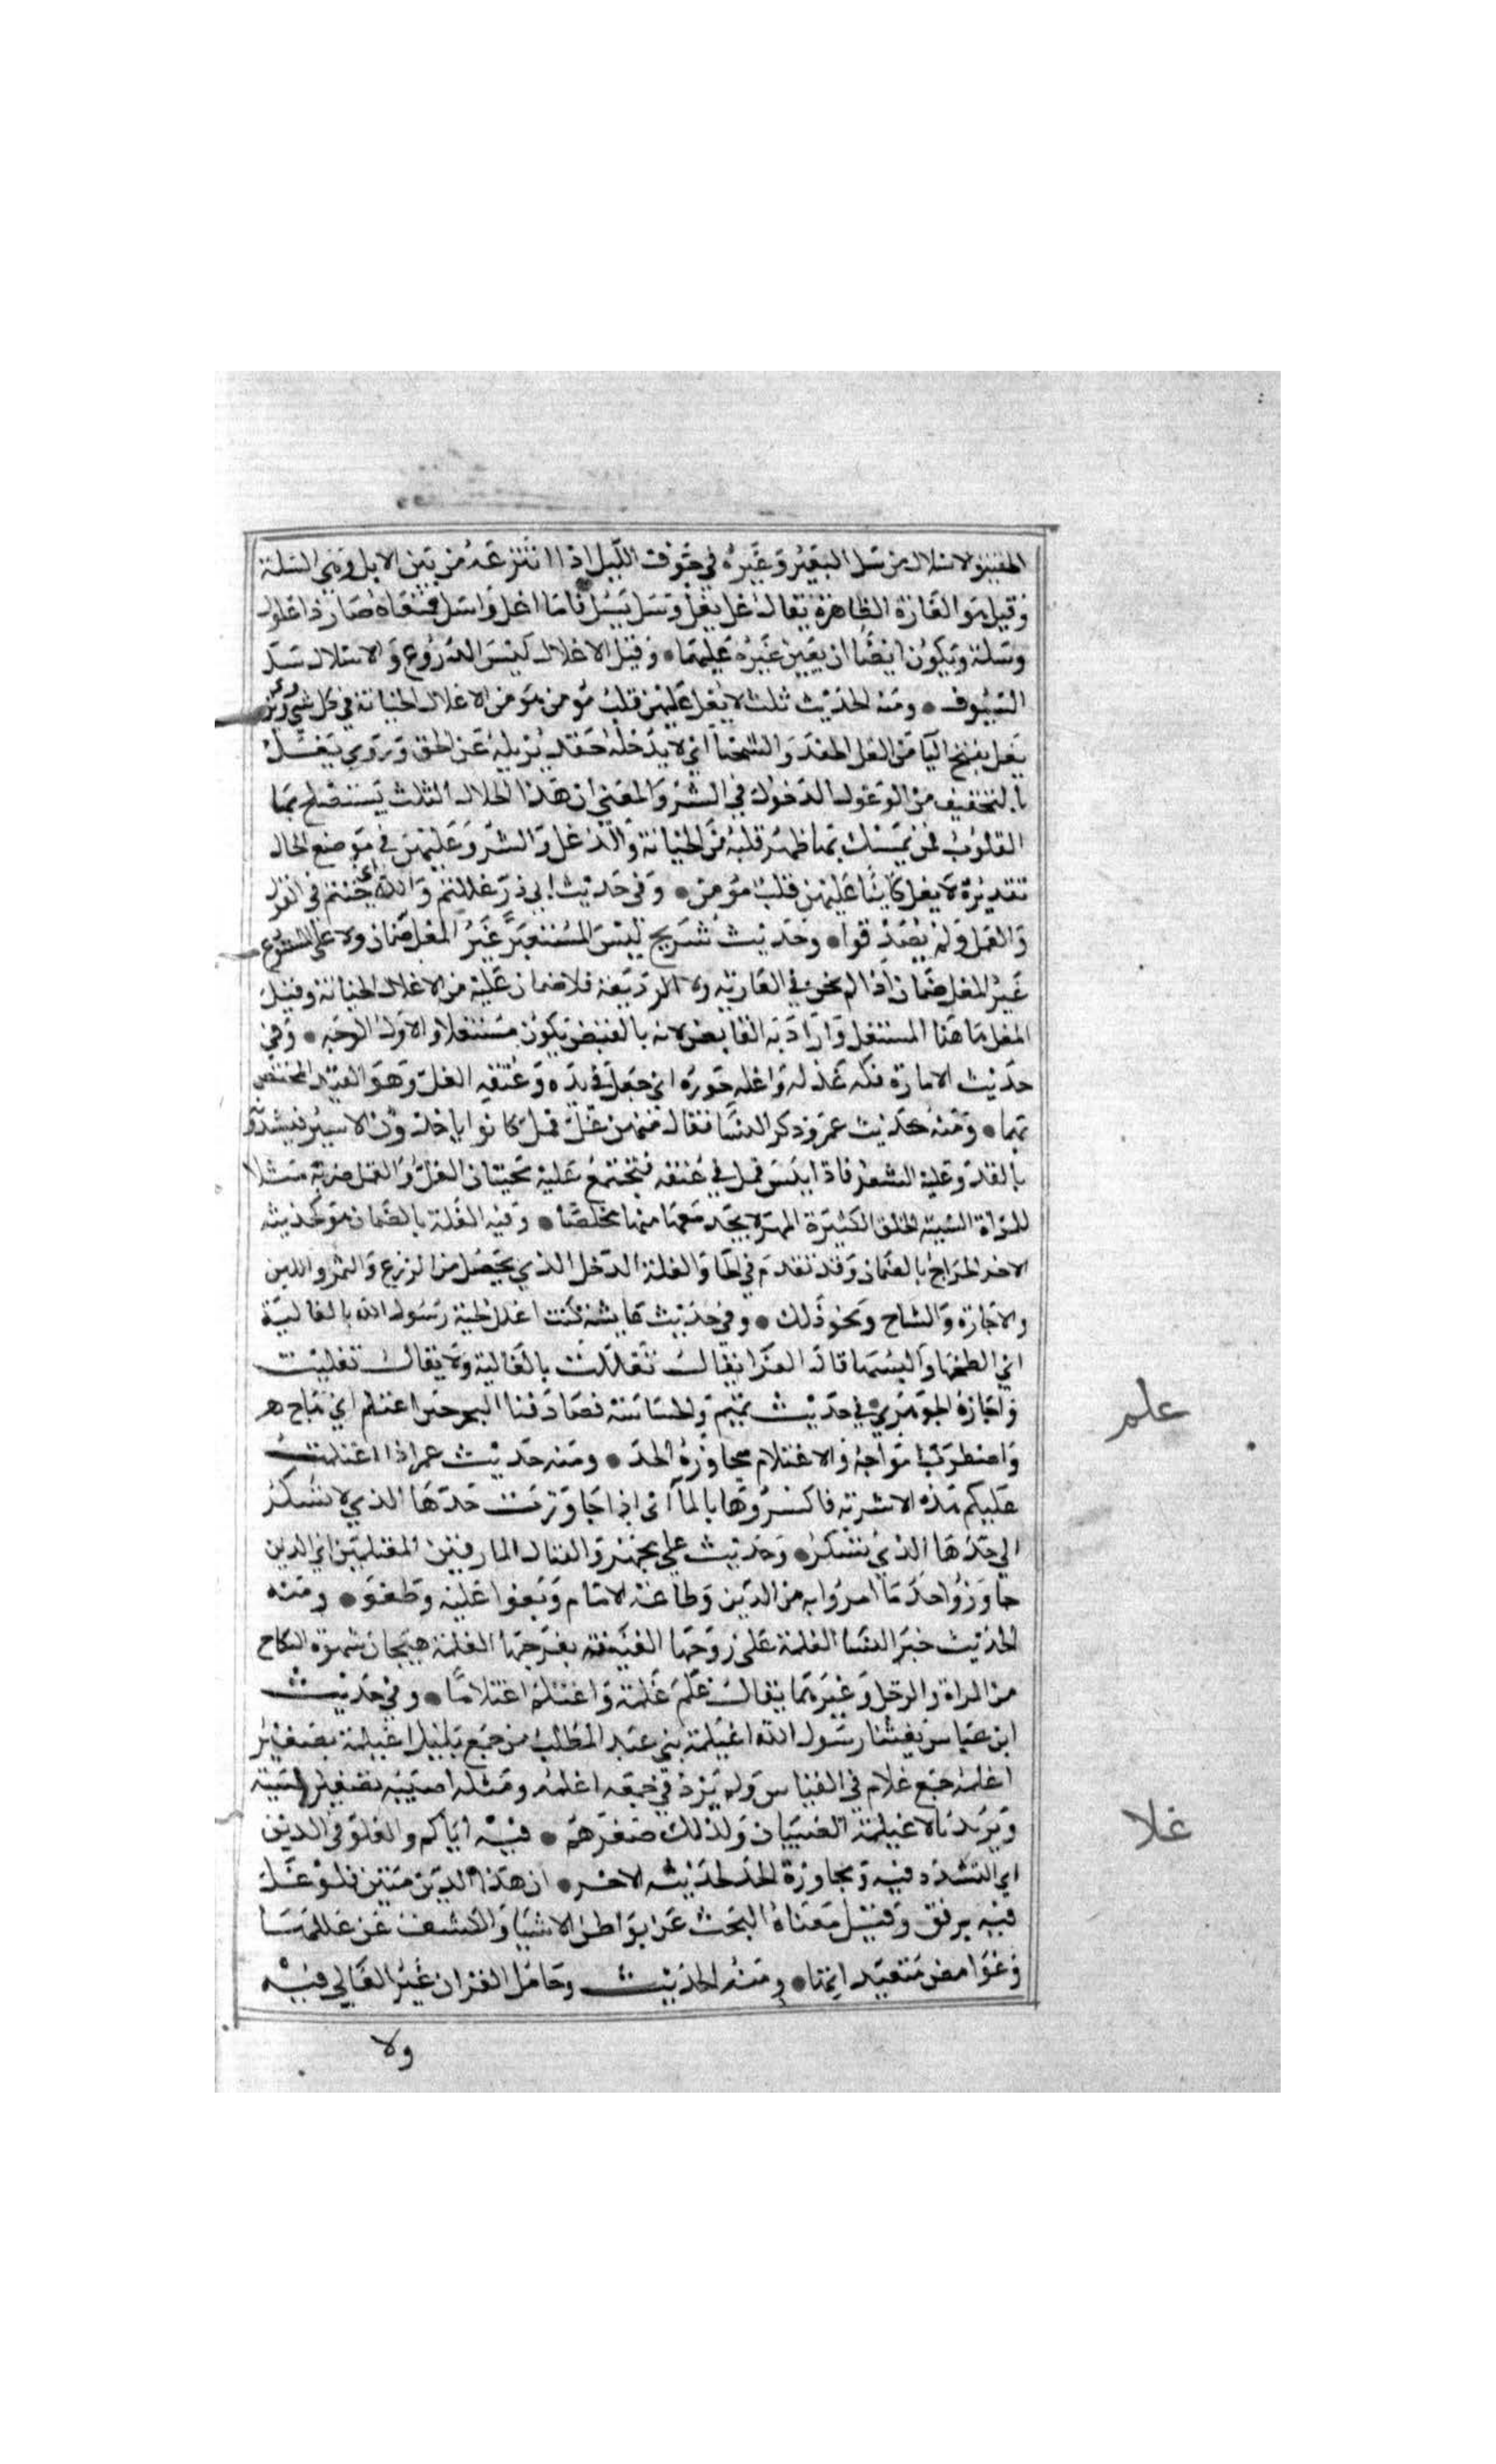 الخفية والاسلال من سل البعير وغيره في جوف الليل اذا انتزعه من بين الابل وهي السلة
وقيل هو الغارة الظاهرة يقال غل يغل وسل يسل فاما اغل واسل فمعناه صار ذا غلول
وسلة ويكون ايضا ان يعين غيره عليهما • وقيل الاغلال لبس الدروع والاسلال سل
السيوف • ومنه الحديث ثلث لا يغل عليهن قلب مومن هو من الاغلال الخيانة في كل شي ويروى
يغل بفتح اليا من الغل الحقد والشحنا اي لا يدخله حقد يزيله عن الحق وروي يغل
بالتخفيف من الوغول الدخول في الشر والمعنى ان هذا الخلال الثلث يستصلح بها
القلوب فمن تمسك بها طهر قلبه من الخيانة والدغل والشر وعليهن في موضع الحال
تقديره لا يغل كاينا عليهن قلب مومن • وفي حديث ابي ذر غللتم والله اي خنتم في القول
والعمل ولم يصدقوا • وحديث شريح ليس المستعير غير المغل ضمان ولا على المستودع
غير المغل ضمان اذا لم يخن في العاريه ولا الوديعة فلا ضمان عليه من الاغلال الخيانة وقيل
المغل هاهنا المستغل واراد به القابض لانه بالقبض يكون مستغلا والاول الوجه • وفي
حديث الامارة فكه عدله واغله جوره اي جعل في يده وعنقه الغل وهو القيد المختص
بهما • ومنه حديث عمر وذكر النسا فقال منهن غل قمل كانوا ياخذون الاسير فيشدونه
بالقد وعليه الشعر فاذا يبس قمل في عنقه فتجتمع عليه محنتان الغل والقمل ضربه مثلا
للمراة السيئة الخلق الكثيرة المهر لا يجد بعلها منها مخلصا • وفيه الغلة بالضمان هو كحديثه
الاخر الخراج بالضمان وقد تقدم في الخا والغلة الدخل الذي يحصل من الزرع والثمر واللبن
والاجارة والنتاج ونحو ذلك • وفي حديث عايشة كنت اغلل لحية رسول الله بالغالية
اي الطخها والبسها قال الفرا يقال تغللت بالغالية ولا يقال تغليت
واجازه الجوهري في حديث تميم والجساسة فصادفنا البحر حين اغتلم اي هاج
واضطربت امواجه والاغتلام مجاوزة الحد • ومنه حديث عمر اذا اغتلمت
عليكم هذه الاشربه فاكسروها بالما اي اذا جاوزت حدها الذي لا يسكر
الى حدها الذي يسكر • وحديث علي تجهزوا لقتال المارقين المغتلمين اي الذين
جاوزوا حد ما امروا به من الدين وطاعة الامام وبغوا عليه وطغوا • ومنه
الحديث خير النسا الغلمة على زوجها العفيفه بفرجها الغلمة هيجان شهوة النكاح
من المراة والرجل وغيرهما يقال غلم غلمة واغتلم اغتلاما • وفي حديث
ابن عباس بعثنا رسول الله اغيلمة بني عبد المطلب من جمع بليل اغيلمة تصغير
اغلمه جمع غلام في القياس ولم يرد في جمعه اغلمه ومثله اصيبيه تصغير اصبيه
ويريد بالاغيلمة الصبيان ولذلك صغرهم • فيه اياكم والغلو في الدين
اي التشدد فيه ومجاوزة الحد لحديثه الاخر • ان هذا الدين متين فاوغل
فيه برفق وقيل معناه البحث عن بواطن الاشيا والكشف عن عللها
وغوامض متعبداتها • ومنه الحديث وحامل القران غير الغالي فيه
ولا
علم
غلا